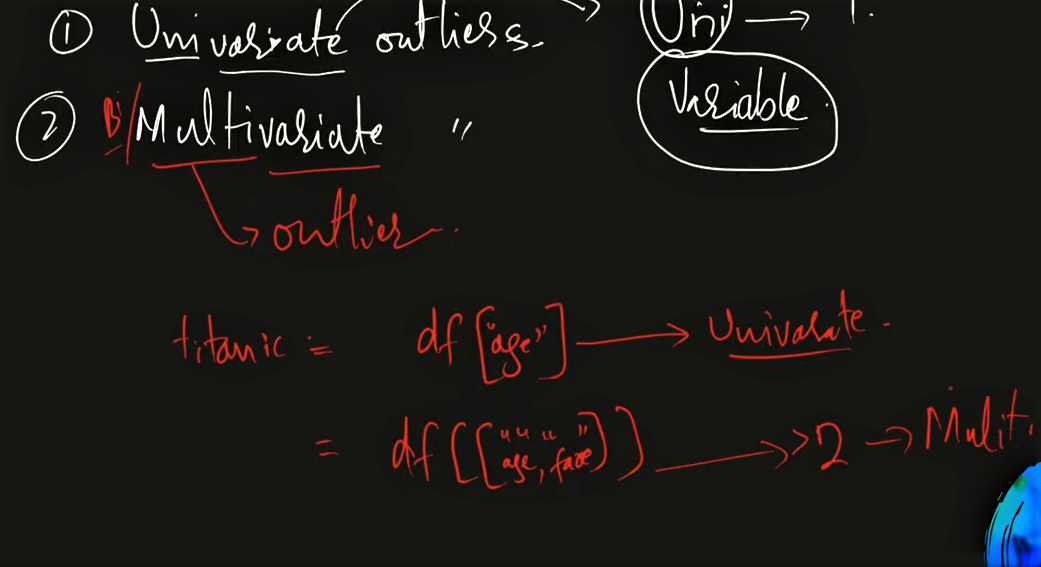 ① Univariate outliers. Uni → 1.
Variable
② Bi/Multivariate "
↳ outlier.
titanic = df["age"] → Univarate.
= df[["age", "fare"]] → >2 → Mulit.